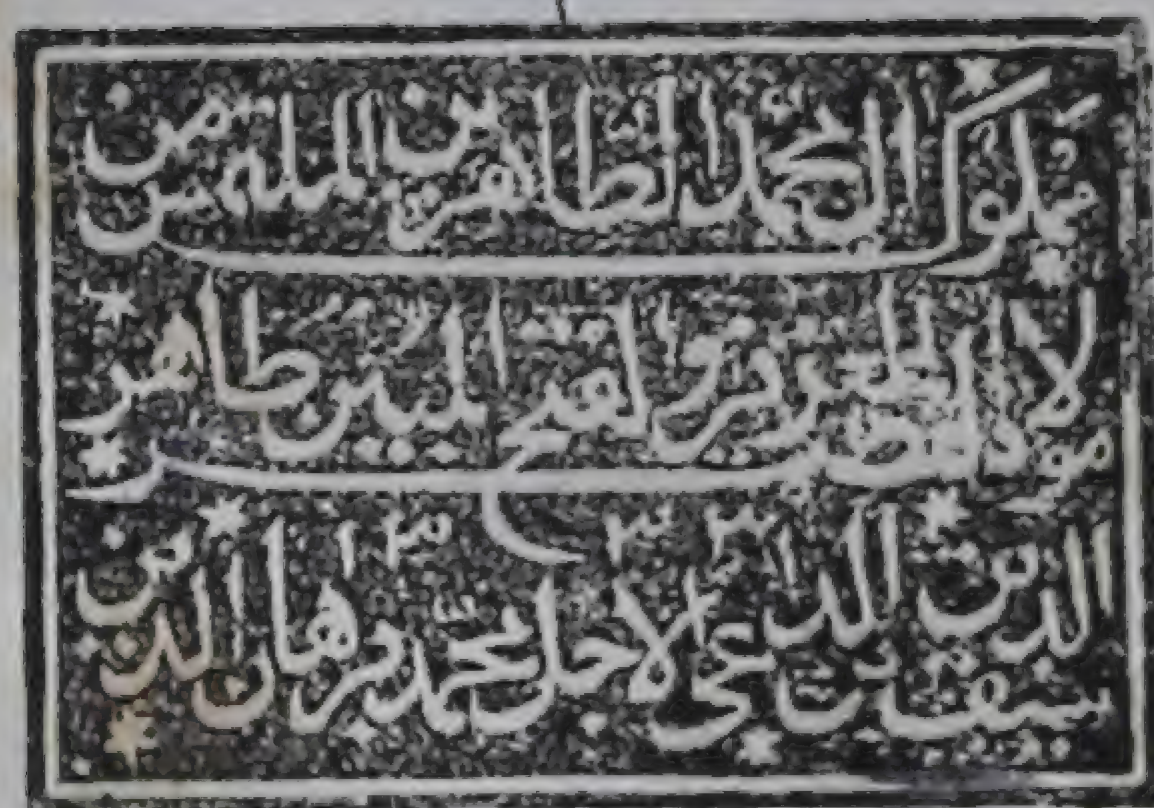 مملوك آل محمد الطاهرين الملهمين
المؤيد بالنصر العزيز والفتح المبين طاهر
سيف الدين بن الداعي الاجل محمد برهان الدين ١٣٣٣